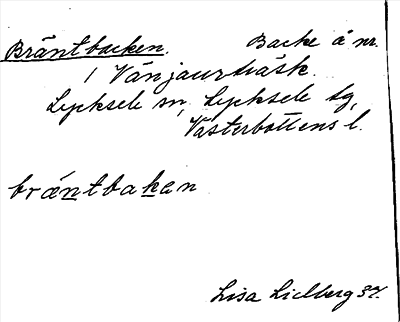 Bräntbacken. Backe å nr.
1 Vänjaurträsk.
Lycksele sn, Lycksele tg,
Västerbottens l.
bräntbakan
Lisa Lidberg 37.